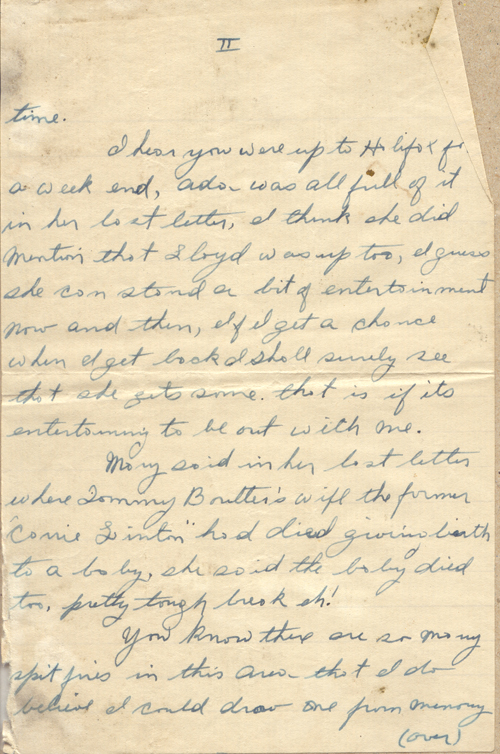 II
time.
I hear you were up to Halifax for
a week end, Ada was all full of it
in her last letter, I think she did
mention that Lloyd was up too, I guess
she can stand a bit of entertainment
now and then, If I get a chance
when I get back I shall surely see
that she gets some. that is if its
entertaining to be out with me.
Mary said in her last letter
where Tommy Boulter's wife the former
"Corrie Linton" had died giving birth
to a baby, she said the baby died
too, pretty tough break eh!
You know there are so many
spitfires in this area that I do
believe I could draw one from memory
(over)